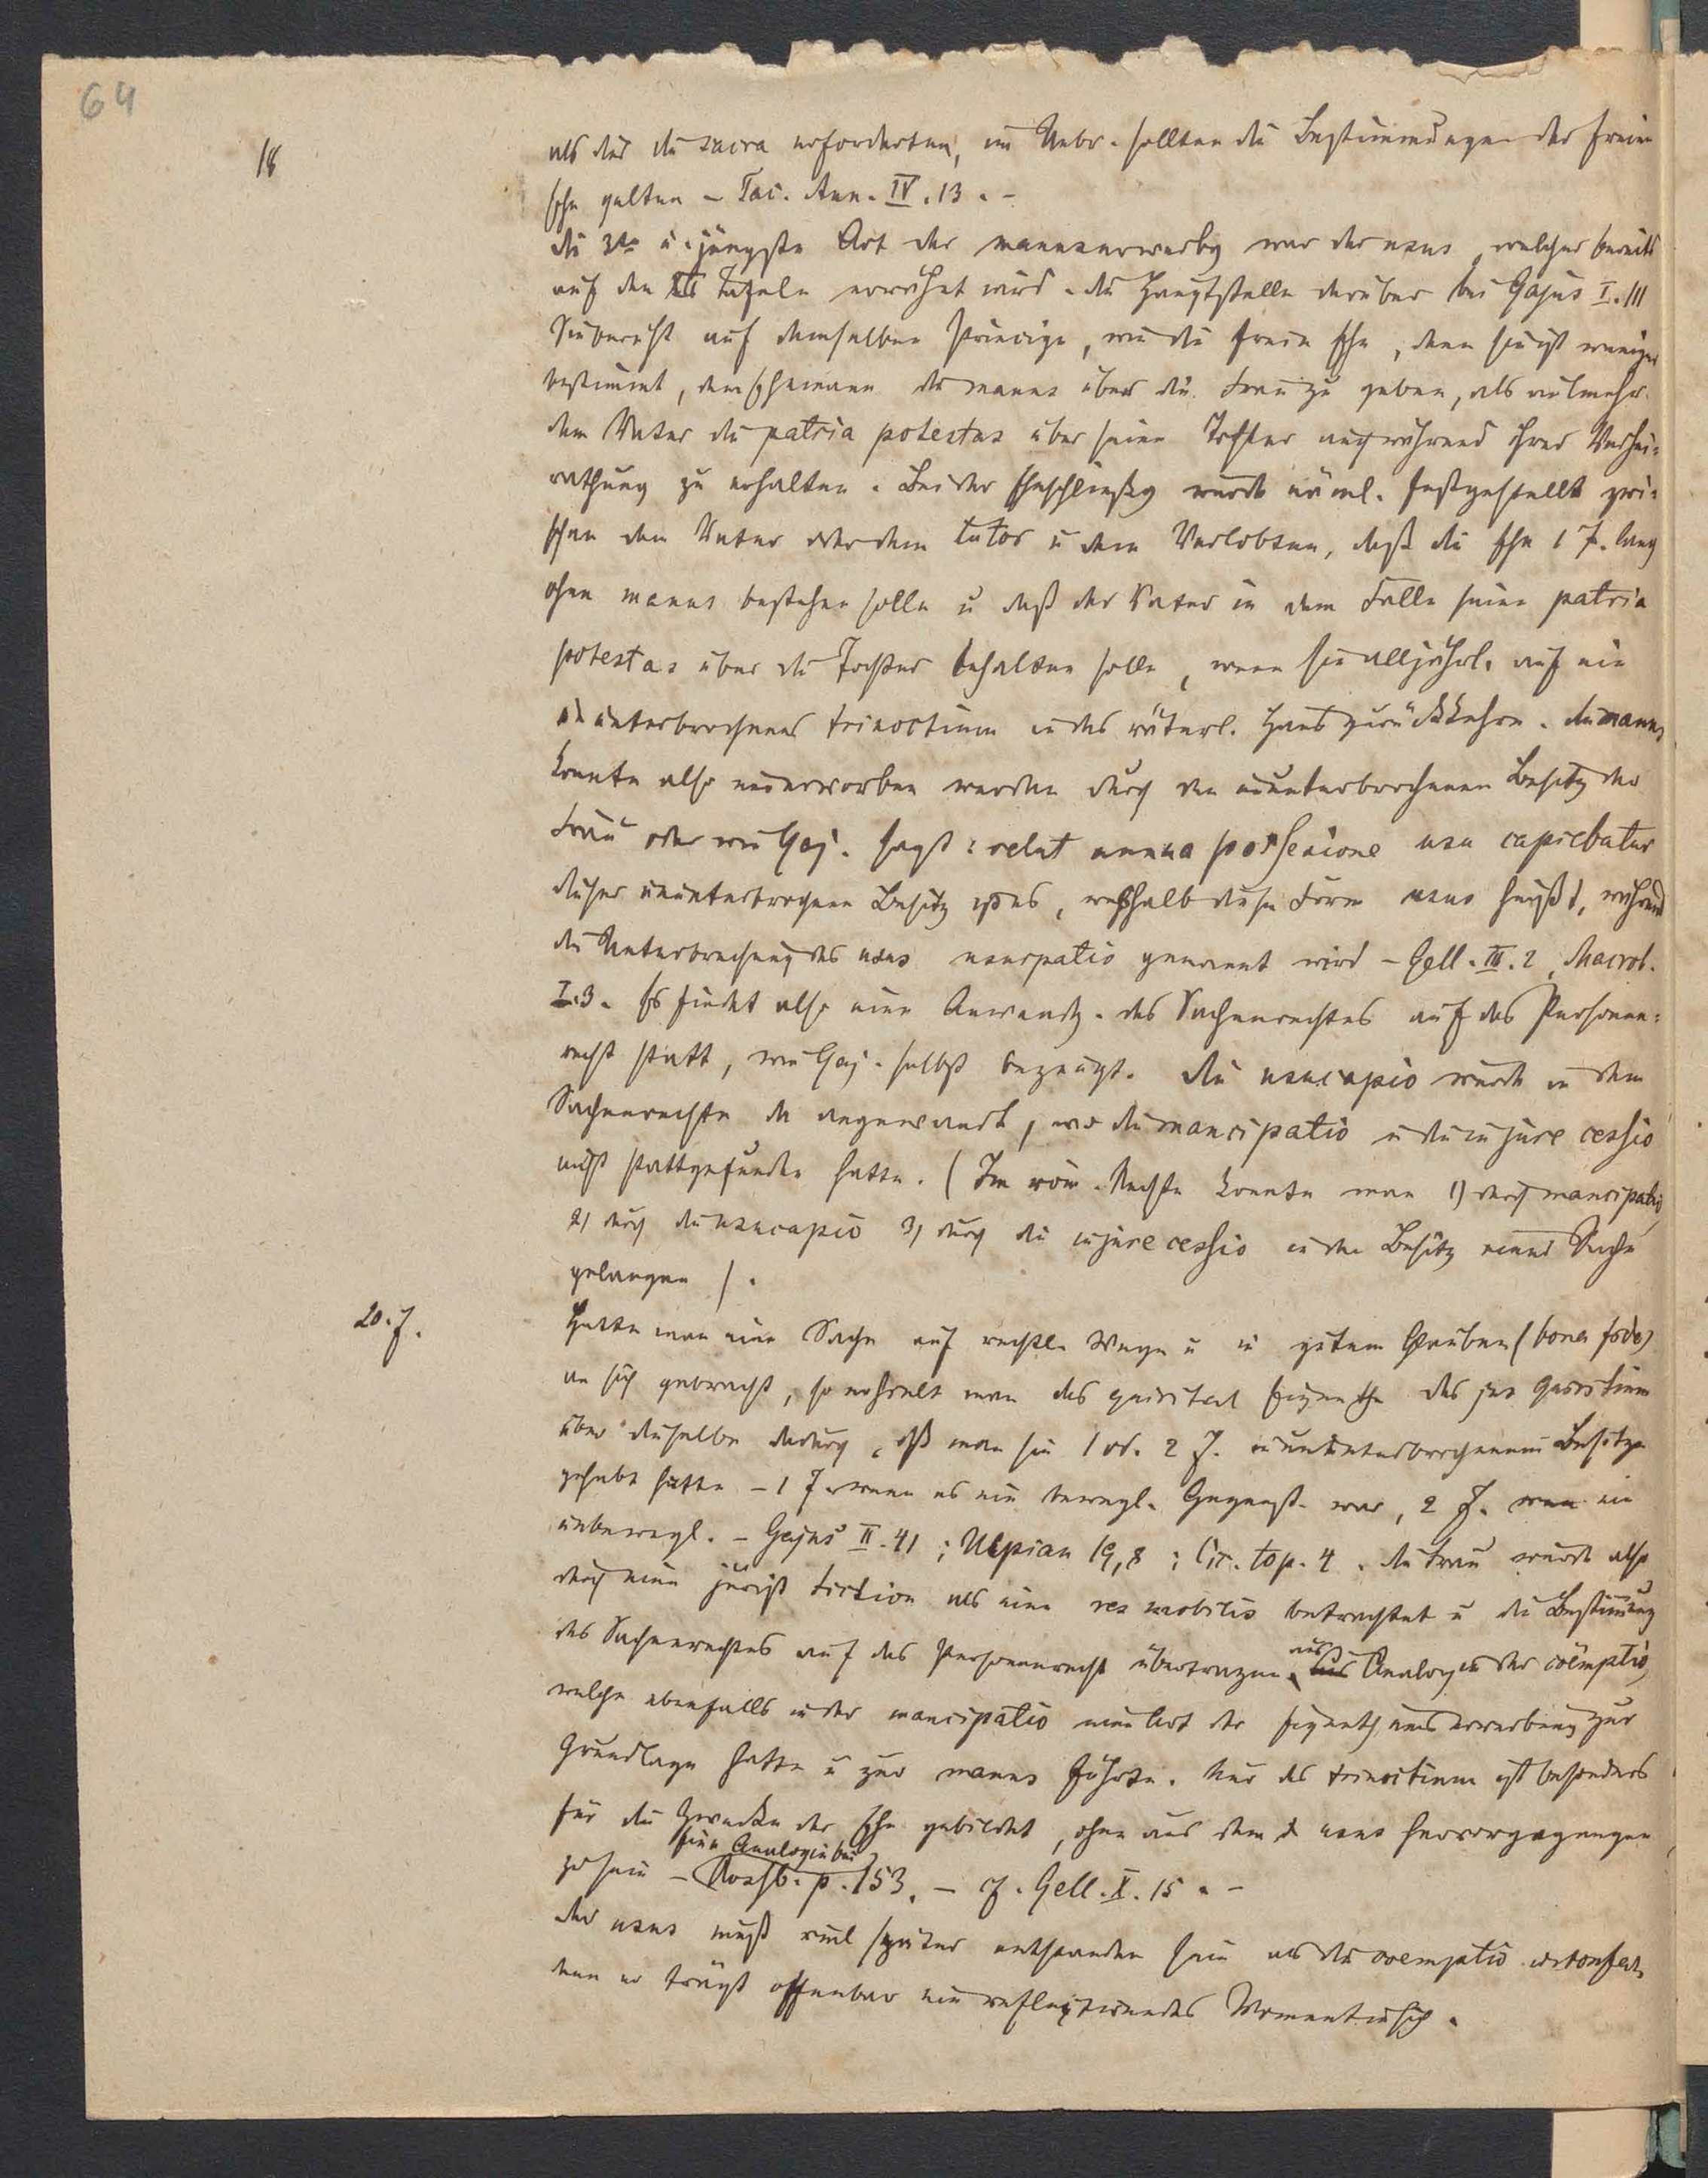 64
18
als dies die sacra erforderten, im Uebr. sollten die Bestimmungen der freien
Ehe gelten – Tac. Ann. IV. 13. –
die 3te u. jüngste Art der manuserwerbg war der usus, welcher bereits
auf den XII Tafeln erwähnt wird. die Hauptstelle darüber bei Gajus I. 111
Sie beruht auf demselben Principe, wie die freie Ehe, denn sie ist weniger
bestimmt, dem Ehemann die manus über die Frau zu geben, als vielmehr
dem Vater die patria potestas über seine Tochter auch während ihrer Verhei-
rathung zu erhalten. Bei der Eheschließg wurde näml. festgestellt zwi-
schen dem Vater oder dem tutor u dem Verlobten, daß die Ehe 1 J. lang
ohne manus bestehen solle u daß der Vater in dem Falle seine patria
potestas über die Tochter behalten solle, wenn sie alljährl. auf ein
ununterbrochenes trinoctium in das väterl. Haus zurückkehre. die manus
konnte also nur erworben werden durch den ununterbrochenen Besitz der
Frau oder wie Gaj. sagt: velut annua possessione usu capiebatur
dieser ununterbrochene Besitz ist es, weßhalb diese Form usus heißt, während
die Unterbrechung des usus usurpatio genannt wird – Gell. III. 2, Macrob.
I. 3. Es findet also eine Anwendg. des Sachenrechtes auf das Personen-
recht statt, wie Gaj. selbst bezeugt. die usucapio wurde in dem
Sachenrechte da angewandt, wo die mancipatio u die in jure cessio
nicht stattgefunden hatte. (Im röm. Rechte konnte man 1) durch mancipatio,
2) durch die usucapio 3) durch die in jure cessio in den Besitz einer Sache
gelangen).
20. J.
Hatte man eine Sache auf rechtl. Wege u in gutem Glauben (bona fide)
an sich gebracht, so erhielt man das quiritar Eigenth das jus Quiritium
über dieselbe dadurch, daß man sie 1 od. 2 J. in ununterbrochenem Besitze
gehabt hatte – 1 J. wenn es ein bewegl. Gegenst. war, 2 J. wenn ein
unbewegl. – Gajus II. 41; Ulpian 19,8; Cic. top. 4. die Frau wurde also
durch eine jurist Fiction als eine res mobilis betrachtet u die Bestimmung
des Sachenrechtes auf das Personenrecht übertragen, aus Analogie der coëmptio,
welche ebenfalls in der mancipatio eine Art der Eigenthumserwerbung zur
Grundlage hatte u zur manus führte. Nur das trinoctium ist besonders
für die Zwecke der Ehe gebildet, ohne aus dem usus hervorgegangen
zu sein – eine Analogie bei Rossb. p. 153. – cf. Gell. X. 15. –
der usus muß viel später entstanden sein als die coemptio u confarr.
denn er trägt offenbar ein reflectirendes Moment in sich.